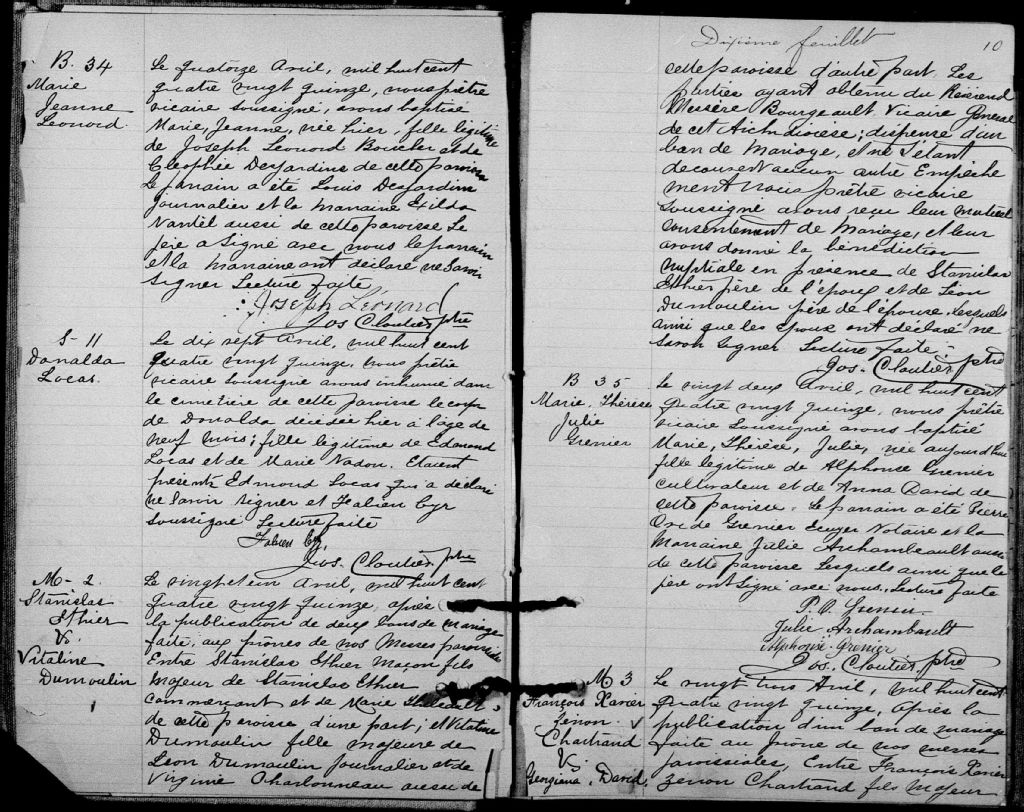 B. 34
Marie
Jeanne
Leonard.
Le quatorze Avril, mil huit cent
quatre vingt quinze, nous prêtre
vicaire soussigné, avons baptisé
Marie, Jeanne, née hier, fille légitime
de Joseph Leonard Boucher et de
Cleophée Desjardins de cette paroisse
Le parrain a été Louis Desjardins
journalier et la marraine Exilda
Nantel aussi de cette paroisse Le
père a signé avec nous le parrain
et la marraine ont déclaré ne savoir
signer Lecture faite
Joseph Léonard
Jos Cloutier ptre
S-11
Donalda
Locas.
Le dix sept Avril, mil huit cent
quatre vingt quinze, nous prêtre
vicaire soussigné avons inhumé dans
le cimetière de cette paroisse le corps
de Donalda décédée hier à l'âge de
neuf mois; fille légitime de Edmond
Locas et de Marie Nadon. Etaient
présents Edmond Locas qui a déclaré
ne savoir signer et Fabien Cyr
soussigné Lecture faite
Fabien Cyr,
Jos. Cloutier, ptre
M-2.
Stanislas
Ethier
Vs.
Vitaline
Dumoulin
1
Le vingt et un Avril, mil huit cent
quatre vingt quinze, après
la publication de deux bans de mariage
faite, aux prônes de nos Messes paroissiales
Entre Stanislas Ethier Maçon fils
Majeur de Stanislas Ethier
commerçant et de Marie
de cette paroisse d'une part; et Vitaline
Dumoulin fille majeure de
Leon Dumoulin journalier et de
Virginie Charbonneau aussi de
Dixième feuillet
10
cette paroisse d'autre part. Les
parties ayant obtenu du Révérend
Messire Bourgeault, Vicaire Général
de cet Archidiocèse; dispense d'un
ban de Mariage, et ne s'étant
découvert aucun autre Empêche
ment Nous prêtre vicaire
soussigné avons reçu leur mutuel
consentement de Mariage, et leur
avons donné la bénédiction
nuptiale en présence de Stanislas
Ethier père de l'époux et de Léon
Dumoulin père de l'épouse, lesquels
ainsi que les époux ont déclaré ne
savoir signer Lecture faite
Jos. Cloutier ptre
B 35
Marie, Thérèse
Julie
Grenier
Le vingt deux Avril, mil huit cent
quatre vingt quinze, nous prêtre
vicaire soussigné avons baptisé
Marie, Thérèse, Julie, née aujourd'hui
fille légitime de Alphonse Grenier
cultivateur et de Anna David de
cette paroisse. Le parrain a été Pierre
Grenier Ecuyer Notaire et la
Marraine Julie Archambeault aussi
de cette paroisse lesquels ainsi que le
père ont signé avec nous. Lecture faite
P. O. Grenier.
Julie Archambault
Alphonse Grenier
Jos. Cloutier ptre
M 3
François Xavier
Zenon
Chartrand
Vs.
Georgiana, David,
Le vingt trois Avril, mil huit cent
quatre vingt quinze, Après la
publication d'un ban de mariage
faite au prône de nos messes
paroissiales, Entre François Xavier
Zenon Chartrand fils Majeur